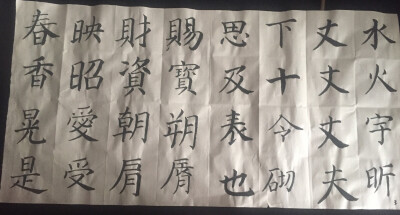 水火宇昕
丈丈丈夫
下十令砌
思及表也
賜寶朔
財資朝肩
映昭愛受
春香晃是